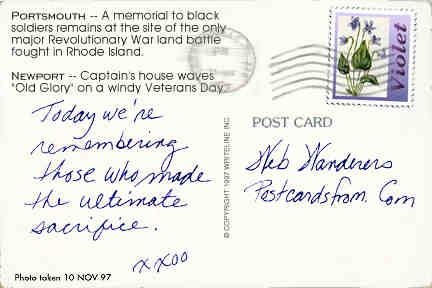 PORTSMOUTH -- A memorial to black
soldiers remains at the site of the only
major Revolutionary War land battle
fought in Rhode Island.
NEWPORT -- Captain's house waves
"Old Glory" on a windy Veterans Day.
Today we're
remembering
those who made
the ultimate
sacrifice.
xxoo
Photo taken 10 NOV 97
© COPYRIGHT 1997 WRITELINE INC
Violet
POST CARD
Web Wanderers
Postcardsfrom.Com